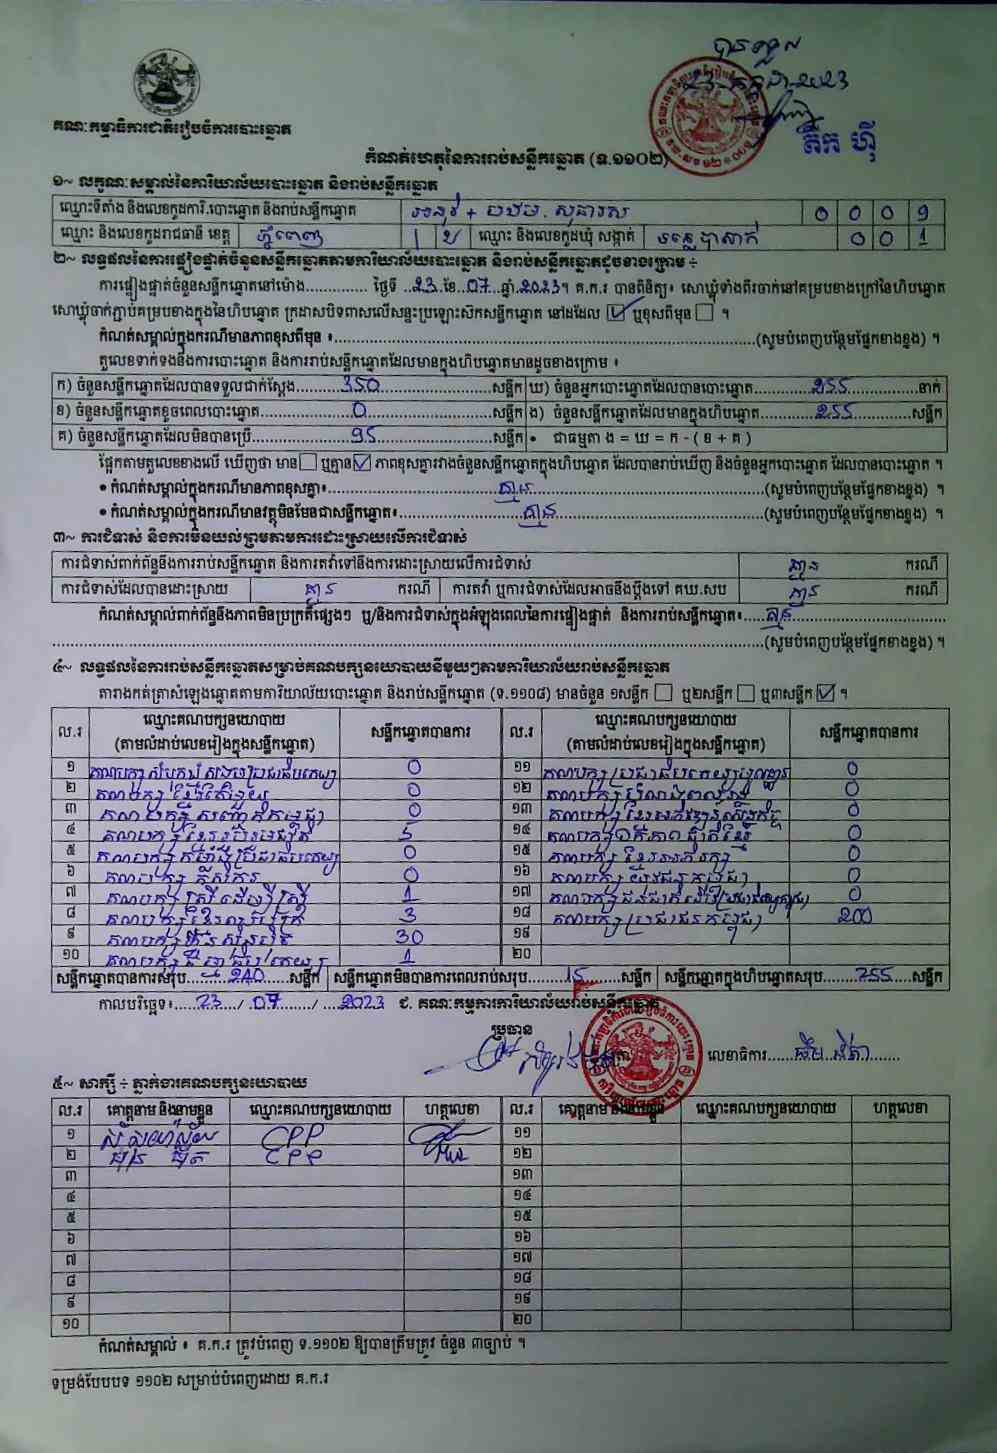 បានទទួល
23-កក្កដា-2023
តឹក ហ៊ី
គណៈកម្មាធិការជាតិរៀបចំការបោះឆ្នោត
កំណត់ហេតុនៃការរាប់សន្លឹកឆ្នោត (ទ.១១០២)
១~ លក្ខណៈសម្គាល់នៃការិយាល័យបោះឆ្នោត និងរាប់សន្លឹកឆ្នោត
ឈ្មោះទីតាំង និងលេខកូដការិ.បោះឆ្នោត និងរាប់សន្លឹកឆ្នោត 0 0 0 9
ឈ្មោះ និងលេខកូដរាជធានី ខេត្ត ភ្នំពេញ 1 2 ឈ្មោះ និងលេខកូដឃុំ សង្កាត់ ទន្លេបាសាក់ 0 0 1
២~ លទ្ធផលនៃការផ្ទៀងផ្ទាត់ចំនួនសន្លឹកឆ្នោតតាមការិយាល័យបោះឆ្នោត និងរាប់សន្លឹកឆ្នោតដូចខាងក្រោម ÷
ការផ្ទៀងផ្ទាត់ចំនួនសន្លឹកឆ្នោតនៅម៉ោង.............. ថ្ងៃទី ..23..ខែ..07...ឆ្នាំ.2023។ គ.ក.រ បានពិនិត្យ៖ សោឃ្លុំទាំងពីរចាក់នៅគម្របខាងក្រៅនៃហិបឆ្នោត
សោឃ្លុំចាក់ភ្ជាប់គម្របខាងក្នុងនៃហិបឆ្នោត ក្រដាសបិទពាសលើសន្ទះប្រឡោះស៊ិកសន្លឹកឆ្នោត នៅដដែល ☑ ឬខុសពីមុន ☐ ។
កំណត់សម្គាល់ក្នុងករណីមានភាពខុសពីមុន ៖..............................(សូមបំពេញបន្ថែមផ្នែកខាងខ្នង) ។
តួលេខទាក់ទងនឹងការបោះឆ្នោត និងការរាប់សន្លឹកឆ្នោតដែលមានក្នុងហិបឆ្នោតមានដូចខាងក្រោម ៖
ក) ចំនួនសន្លឹកឆ្នោតដែលបានទទួលជាក់ស្តែង..........350..........សន្លឹក ឃ) ចំនួនអ្នកបោះឆ្នោតដែលបានបោះឆ្នោត..........255..........នាក់
ខ) ចំនួនសន្លឹកឆ្នោតខូចពេលបោះឆ្នោត..........0..........សន្លឹក ង) ចំនួនសន្លឹកឆ្នោតដែលមានក្នុងហិបឆ្នោត..........255..........សន្លឹក
គ) ចំនួនសន្លឹកឆ្នោតដែលមិនបានប្រើ..........95..........សន្លឹក • ជាធម្មតា ង = ឃ = ក - ( ខ + គ )
ផ្អែកតាមតួលេខខាងលើ ឃើញថា មាន ☐ ឬគ្មាន ☑ ភាពខុសគ្នារវាងចំនួនសន្លឹកឆ្នោតក្នុងហិបឆ្នោត ដែលបានរាប់ឃើញ និងចំនួនអ្នកបោះឆ្នោត ដែលបានបោះឆ្នោត ។
• កំណត់សម្គាល់ក្នុងករណីមានភាពខុសគ្នា៖..........គ្មាន..........(សូមបំពេញបន្ថែមផ្នែកខាងខ្នង) ។
• កំណត់សម្គាល់ក្នុងករណីមានវត្ថុមិនមែនជាសន្លឹកឆ្នោត៖..........គ្មាន..........(សូមបំពេញបន្ថែមផ្នែកខាងខ្នង) ។
៣~ ការជំទាស់ និងការមិនយល់ព្រមតាមការដោះស្រាយលើការជំទាស់
ការជំទាស់ពាក់ព័ន្ធនឹងការរាប់សន្លឹកឆ្នោត និងការតវ៉ាទៅនឹងការដោះស្រាយលើការជំទាស់ គ្មាន ករណី
ការជំទាស់ដែលបានដោះស្រាយ គ្មាន ករណី ការតវ៉ា ឬការជំទាស់ដែលអាចនឹងប្តឹងទៅ គឃ.សប គ្មាន ករណី
កំណត់សម្គាល់ពាក់ព័ន្ធនឹងភាពមិនប្រក្រតីផ្សេងៗ ឬ/និងការជំទាស់ក្នុងអំឡុងពេលនៃការផ្ទៀងផ្ទាត់ និងការរាប់សន្លឹកឆ្នោត៖....គ្មាន..........
..............................(សូមបំពេញបន្ថែមផ្នែកខាងខ្នង) ។
៤~ លទ្ធផលនៃការរាប់សន្លឹកឆ្នោតសម្រាប់គណបក្សនយោបាយនីមួយៗតាមការិយាល័យរាប់សន្លឹកឆ្នោត
តារាងកត់ត្រាសំឡេងឆ្នោតតាមការិយាល័យបោះឆ្នោត និងរាប់សន្លឹកឆ្នោត (ទ.១១០៨) មានចំនួន ១សន្លឹក ☐ ឬ២សន្លឹក ☐ ឬ៣សន្លឹក ☑ ។
ល.រ ឈ្មោះគណបក្សនយោបាយ (តាមលំដាប់លេខរៀងក្នុងសន្លឹកឆ្នោត) សន្លឹកឆ្នោតបានការ ល.រ ឈ្មោះគណបក្សនយោបាយ (តាមលំដាប់លេខរៀងក្នុងសន្លឹកឆ្នោត) សន្លឹកឆ្នោតបានការ
១ គណបក្ស សំបុកឃ្មុំសង្គមប្រជាធិបតេយ្យ 0 ១១ គណបក្សប្រជាធិបតេយ្យមូលដ្ឋាន 0
២ គណបក្ស ខ្មែរតែមួយ 0 ១២ គណបក្ស 0
៣ គណបក្ស សញ្ជាតិកម្ពុជា 0 ១៣ គណបក្ស ខ្មែរអភិវឌ្ឍន៍សេដ្ឋកិច្ច 0
៤ គណបក្ស ខ្មែររួបរួមជាតិ 5 ១៤ គណបក្ស ឯកភាពជាតិខ្មែរ 0
៥ គណបក្ស កម្លាំងប្រជាធិបតេយ្យ 0 ១៥ គណបក្ស ខ្មែរអភិរក្ស 0
៦ គណបក្ស កសិករ 0 ១៦ គណបក្ស យុវជនកម្ពុជា 0
៧ គណបក្ស ស្ត្រីដើម្បីស្ត្រី 1 ១៧ គណបក្ស 0
៨ គណបក្ស ខ្មែរឈប់ក្រីក្រ 3 ១៨ គណបក្ស ប្រជាជនកម្ពុជា 200
៩ គណបក្ស ហ៊្វុនស៊ិនប៉ិច 30 ១៩
១០ គណបក្ស ធម្មាធិបតេយ្យ 1 ២០
សន្លឹកឆ្នោតបានការសរុប.....240.....សន្លឹក សន្លឹកឆ្នោតមិនបានការពេលរាប់សរុប.....15.....សន្លឹក សន្លឹកឆ្នោតក្នុងហិបឆ្នោតសរុប.....255.....សន្លឹក
កាលបរិច្ឆេទ៖....23..../..07..../....2023 ជ. គណៈកម្មការការិយាល័យរាប់សន្លឹកឆ្នោត
ប្រធាន
លេខាធិការ
៥~ សាក្សី ÷ ភ្នាក់ងារគណបក្សនយោបាយ
ល.រ គោត្តនាម និងនាមខ្លួន ឈ្មោះគណបក្សនយោបាយ ហត្ថលេខា ល.រ គោត្តនាម និងនាមខ្លួន ឈ្មោះគណបក្សនយោបាយ ហត្ថលេខា
១ CPP ១១
២ CPP ១២
៣ ១៣
៤ ១៤
៥ ១៥
៦ ១៦
៧ ១៧
៨ ១៨
៩ ១៩
១០ ២០
កំណត់សម្គាល់ ៖ គ.ក.រ ត្រូវបំពេញ ទ.១១០២ ឱ្យបានត្រឹមត្រូវ ចំនួន ៣ច្បាប់ ។
ទម្រង់បែបបទ ១១០២ សម្រាប់បំពេញដោយ គ.ក.រ